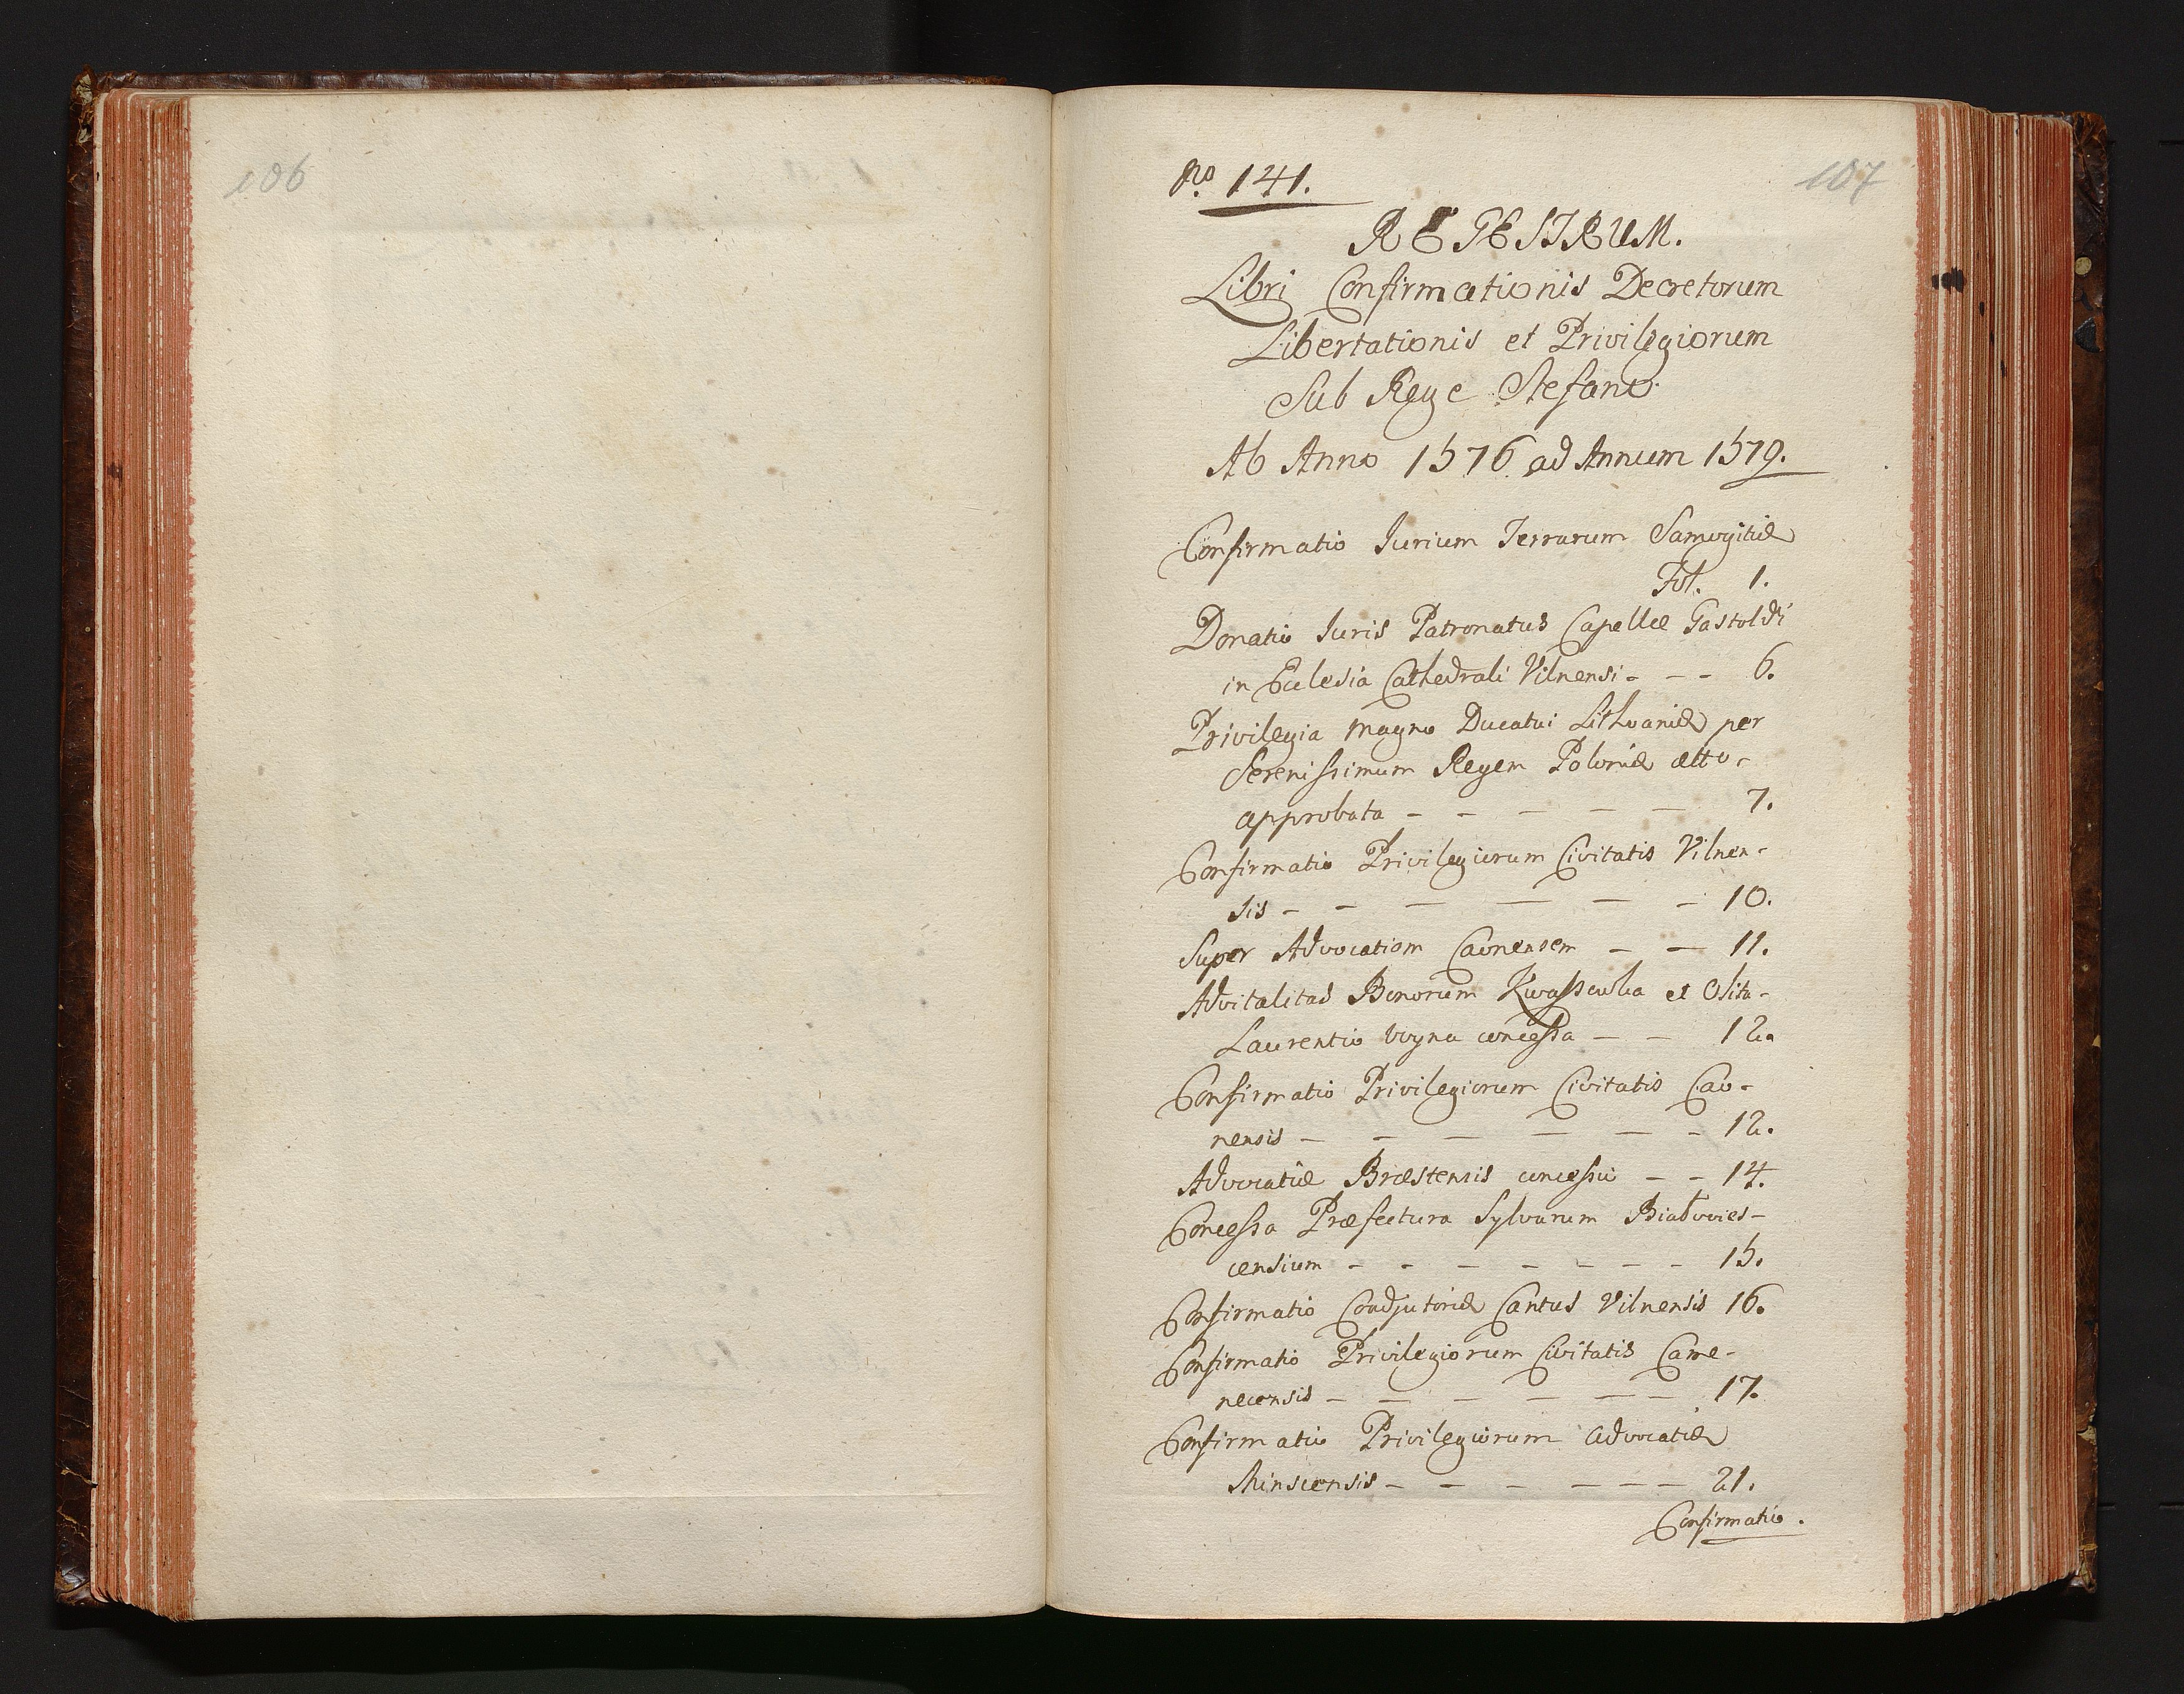 106
107
No 141.
REGESTRUM.
Libri Confirmationis Decretorum
Libertationis et Privilegiorum
Sub Rege Stefano.
Ab Anno 1576 ad Annum 1579.
Confirmatio Jurium Terrarum Samogitiæ
Fol. 1.
Donatio Juris Patronatus Capellæ Gastoldi
in Eclesia Cathedrali Vilnensi - - - 6.
Privilegia Magno Ducatui Lithvaniæ per
Serenissimum Regem Poloniæ etto-
approbata - - - - - 7.
Confirmatio Privilegiorum Civitatis Vilnen-
sis - - - - - - 10.
Super Advocatiam Caonensem - - 11.
Advitalitas Bonorum et Olita-
Laurentio Woyna concessa - - 12.
Confirmatio Privilegiorum Civitatis Cao-
nensis - - - - - - 12.
Advocatiæ Bræstensis concessio - - 14.
Concessa Præfectura Sylvarum Białovies-
censium - - - - - - - 15.
Confirmatio Coadjutoriæ Cantus Vilnensis 16.
Confirmatio Privilegiorum Civitatis Came-
necensis - - - - - - - 17.
Confirmatio Privilegiorum advocatiæ
Minscensis - - - - - - 21.
Confirmatio.